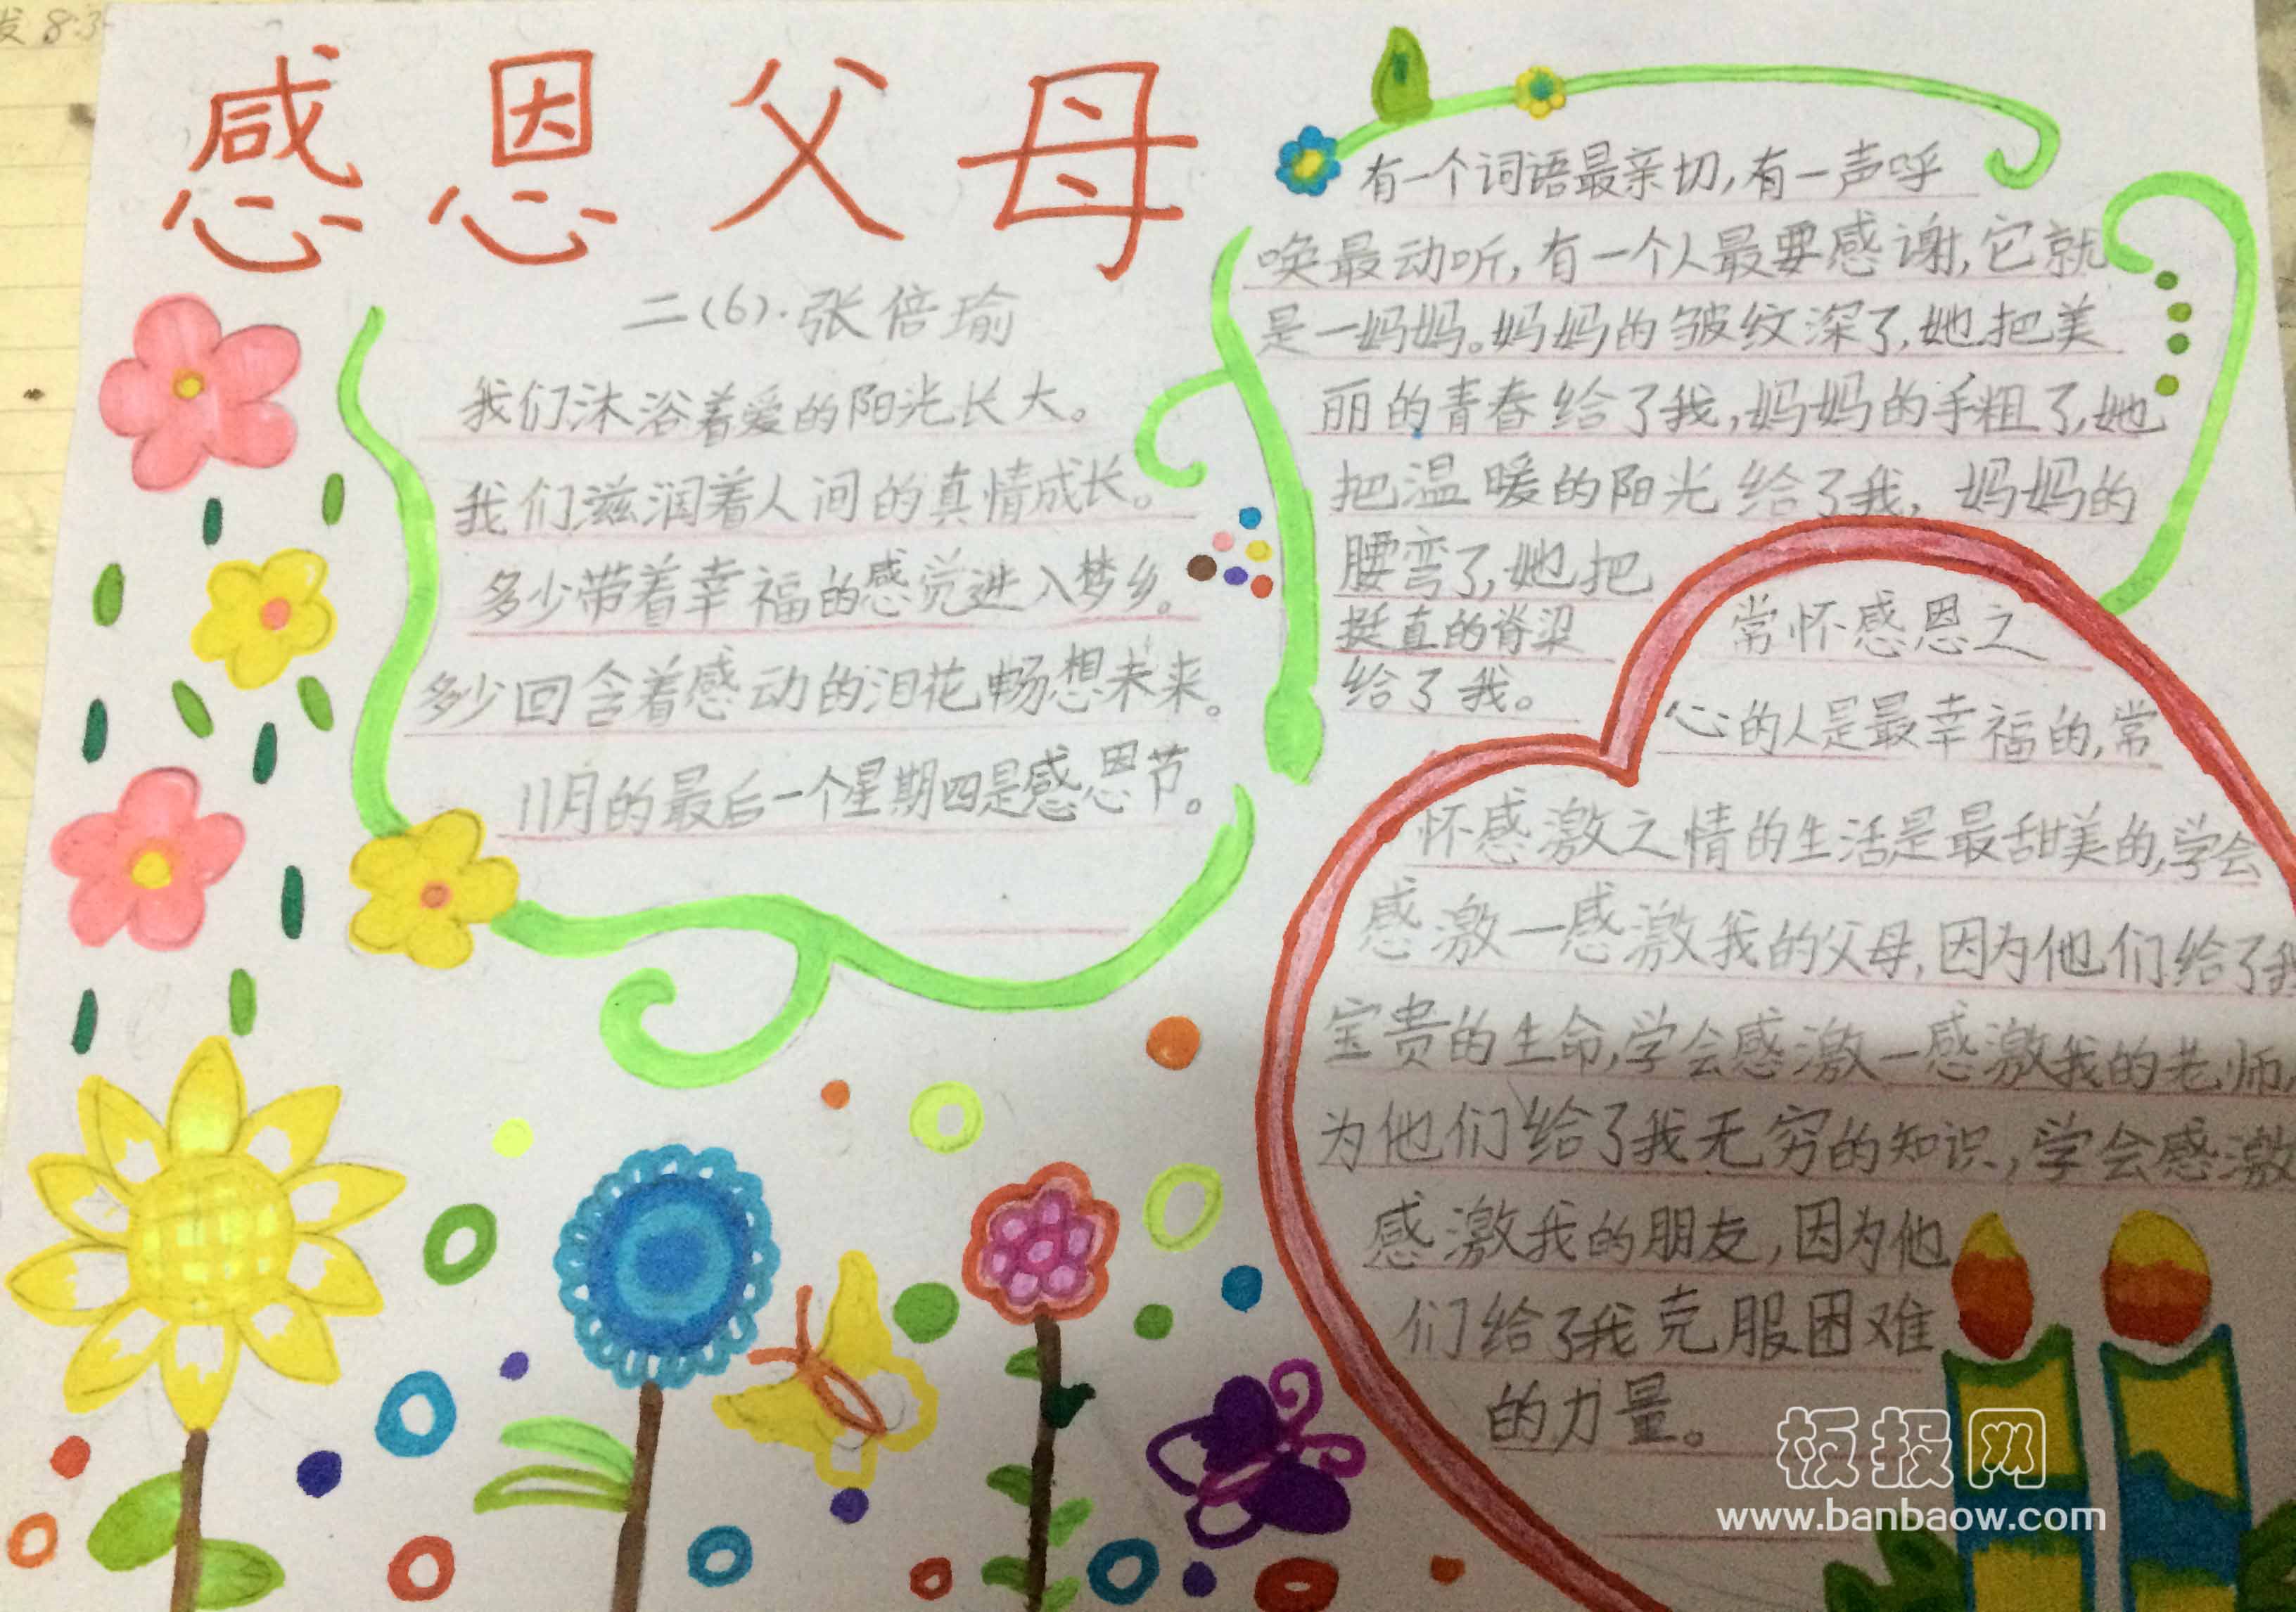 发 8:3
感恩父母
二(6)·张倍瑜
我们沐浴着爱的阳光长大。
我们滋润着人间的真情成长。
多少带着幸福的感觉进入梦乡。
多少回含着感动的泪花畅想未来。
11月的最后一个星期四是感恩节。
有一个词语最亲切,有一声呼
唤最动听,有一个人最要感谢,它就
是一妈妈。妈妈的皱纹深了,她把美
丽的青春给了我,妈妈的手粗了,她
把温暖的阳光给了我,妈妈的
腰弯了,她把
挺直的脊梁
给了我。
常怀感恩之
心的人是最幸福的,常
怀感激之情的生活是最甜美的,学会
感激一感激我的父母,因为他们给了我
宝贵的生命,学会感激一感激我的老师,
为他们给了我无穷的知识,学会感激
感激我的朋友,因为他
们给了我克服困难
的力量。
板报网
www.banbaow.com